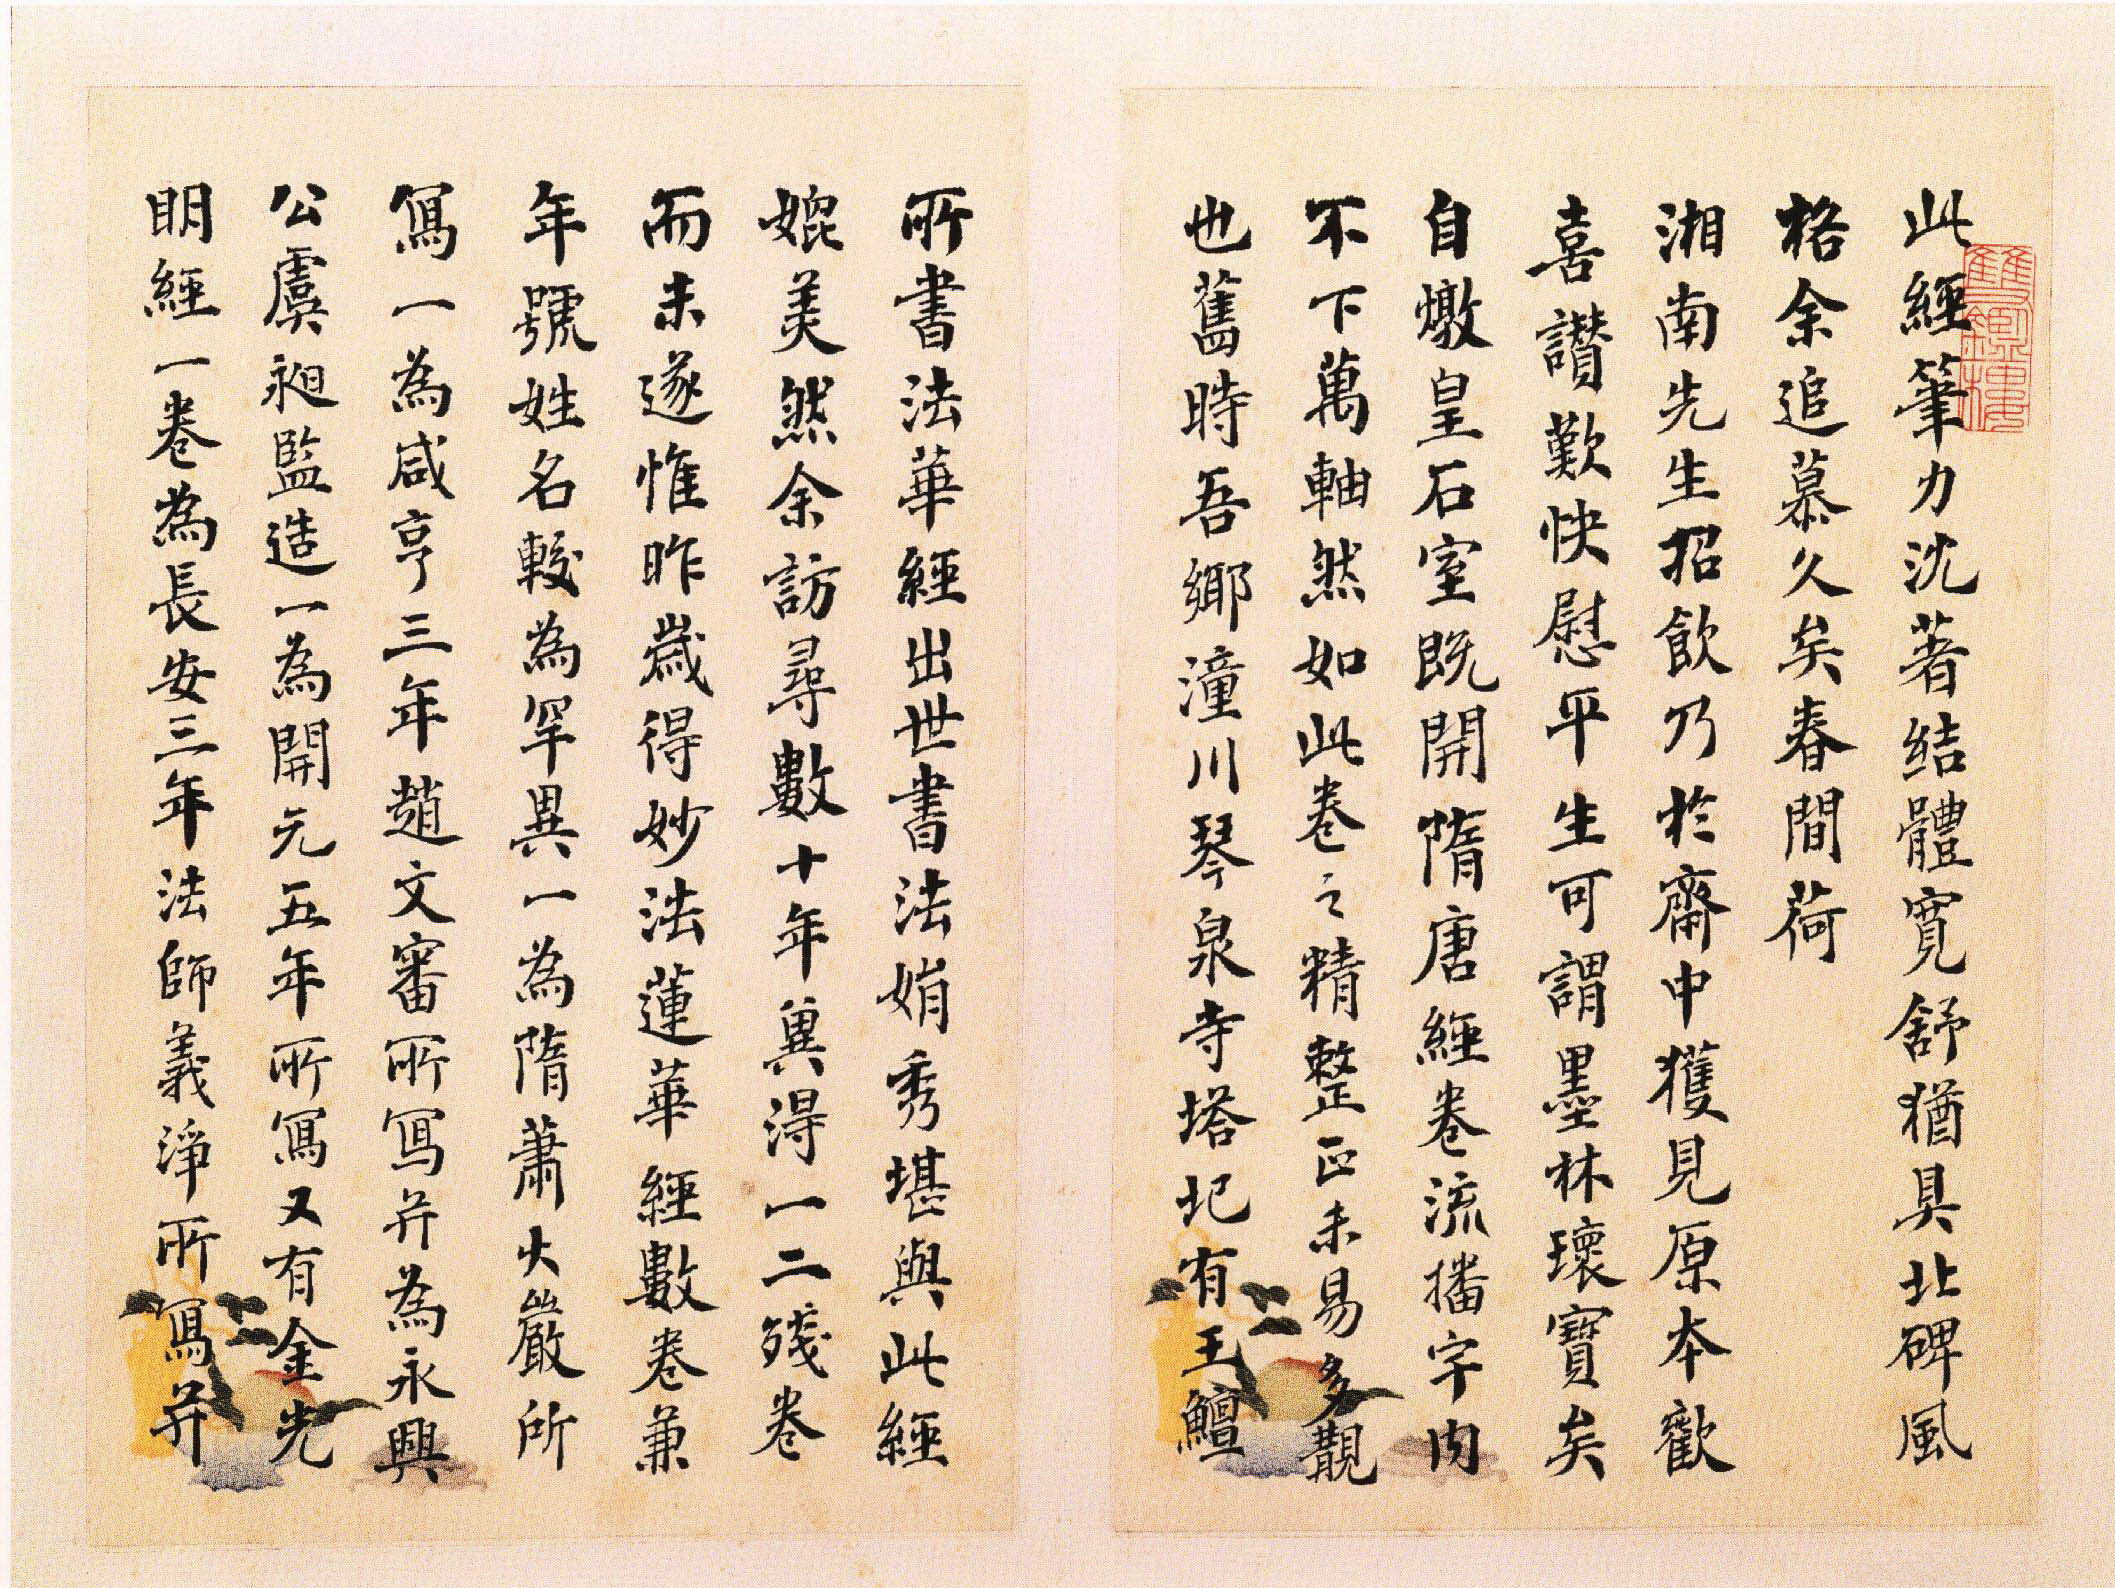 此經筆力沈著結體寬舒猶具北碑風
格余追慕久矣春間荷
湘南先生招飲乃於齋中獲見原本歡
喜讃歎快慰平生可謂墨林瓌寶矣
自燉皇石室既開隋唐經卷流播宇内
不下萬軸然如此卷之精整正未易多覯
也舊時吾鄉潼川琴泉寺塔圮有王鱣
所書法華經出世書法娟秀堪與此經
媲美然余訪尋數十年兾得一二殘卷
而未遂惟昨歲得妙法蓮華經數卷兼
年號姓名較為罕異一為隋蕭大嚴所
寫一為咸亨三年趙文審所寫并為永興
公虞昶監造一為開元五年所寫又有金光
明經一卷為長安三年法師義淨所寫并